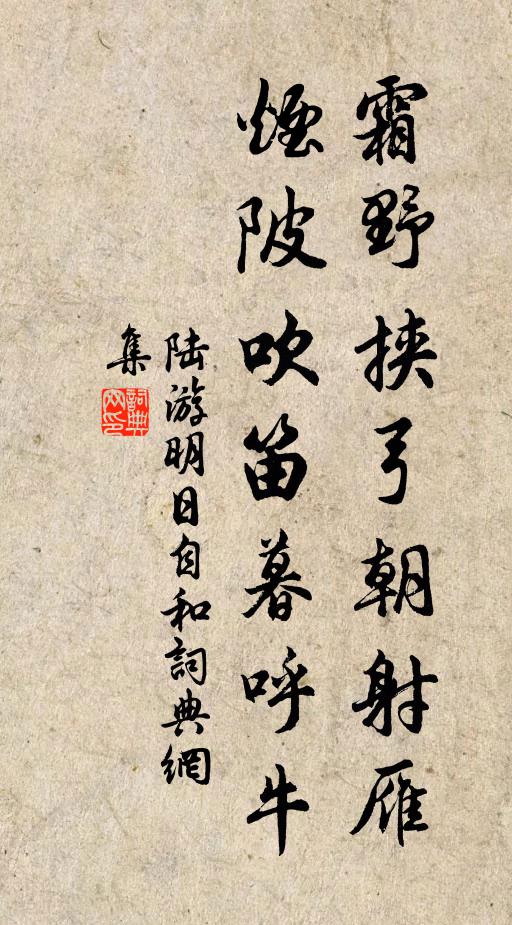 霜野挟弓朝射雁
煙陂吹笛暮呼牛
陸游明日自和詞典網
集
詞典
网印